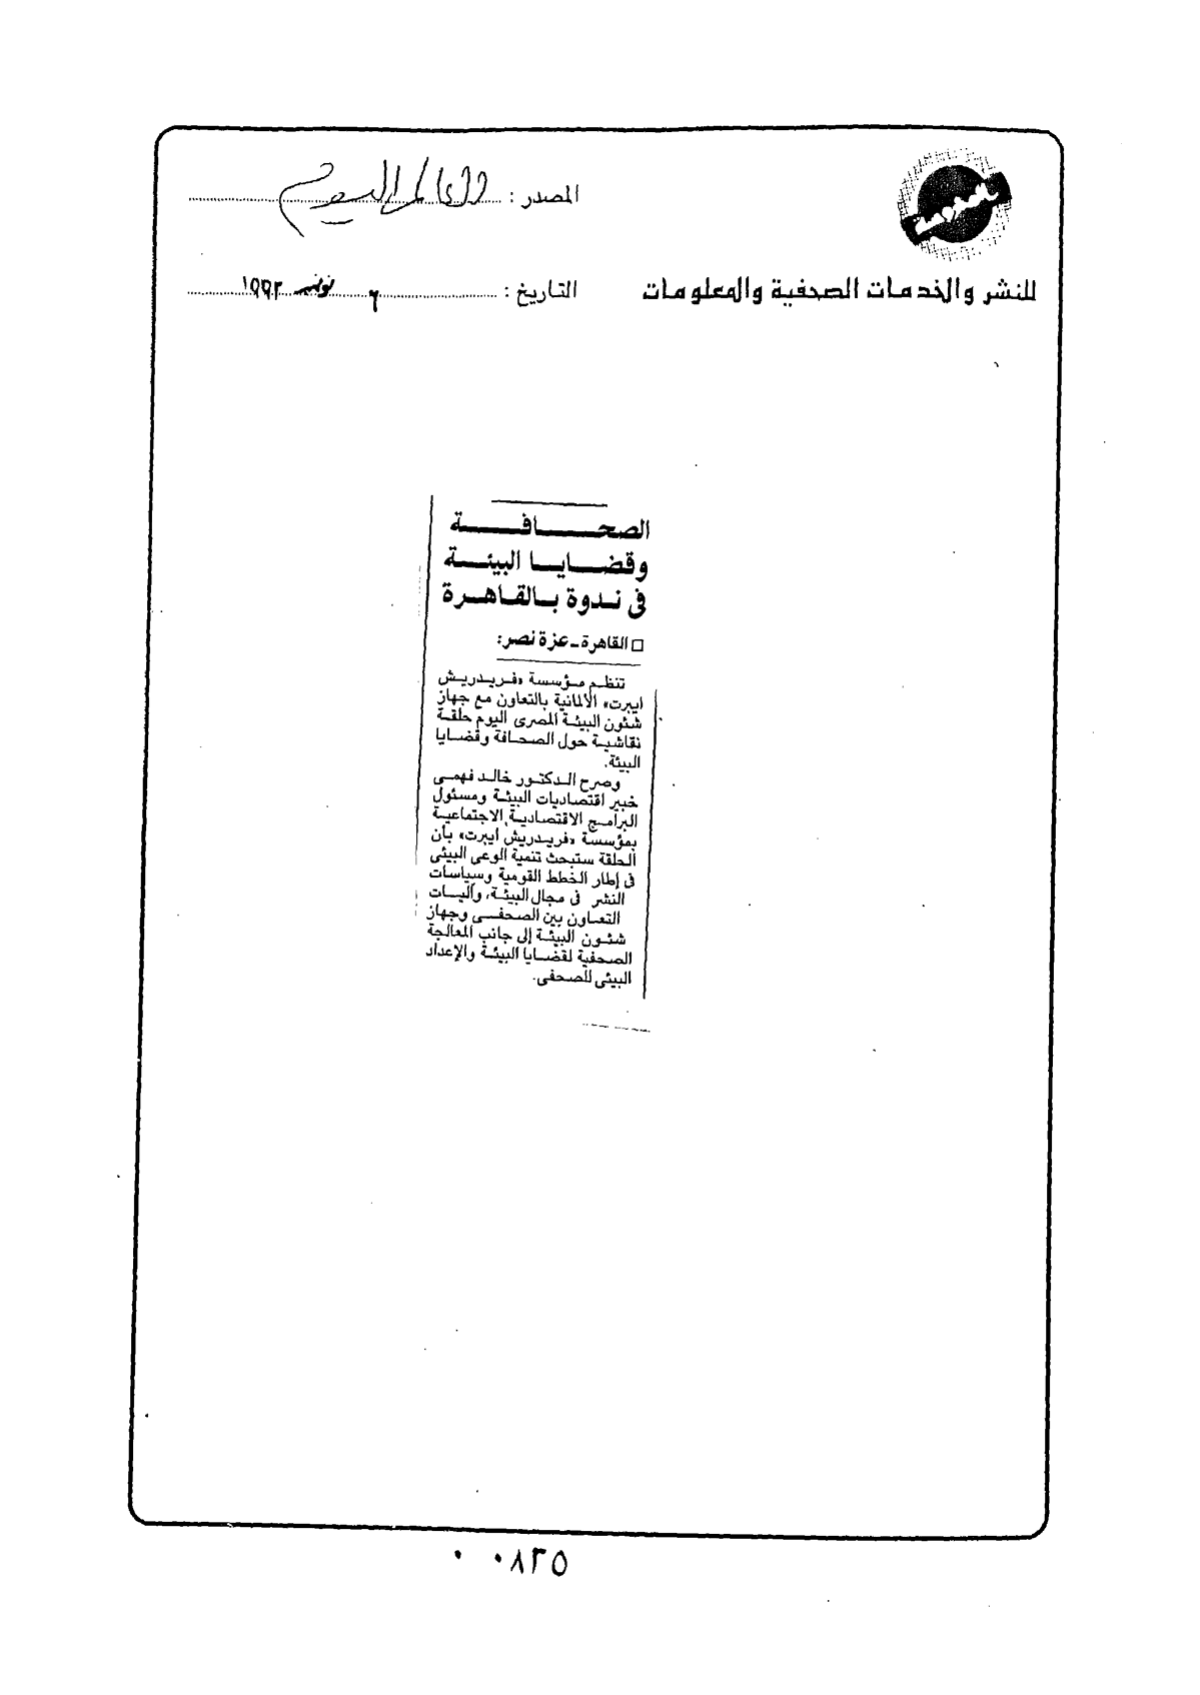 المصدر : العالم اليوم
للنشر والخدمات الصحفية والمعلومات
التاريخ : ٦ نوفمبر ١٩٩٢
الصحافة
وقضايا البيئة
فى ندوة بالقاهرة
□ القاهرة - عزة نصر:
تنظم مؤسسة «فريدريش
ايبرت» الألمانية بالتعاون مع جهاز
شئون البيئة المصرى اليوم حلقة
نقاشية حول الصحافة وقضايا
البيئة.
وصرح الدكتور خالد فهمى
خبير اقتصاديات البيئة ومسئول
البرامج الاقتصادية الاجتماعية
بمؤسسة «فريدريش ايبرت» بأن
الحلقة ستبحث تنمية الوعى البيئى
فى إطار الخطط القومية وسياسات
النشر فى مجال البيئة، وآليات
التعاون بين الصحفى وجهاز
شئون البيئة إلى جانب المعالجة
الصحفية لقضايا البيئة والإعداد
البيئى للصحفى.
٠ ٠٨٢٥